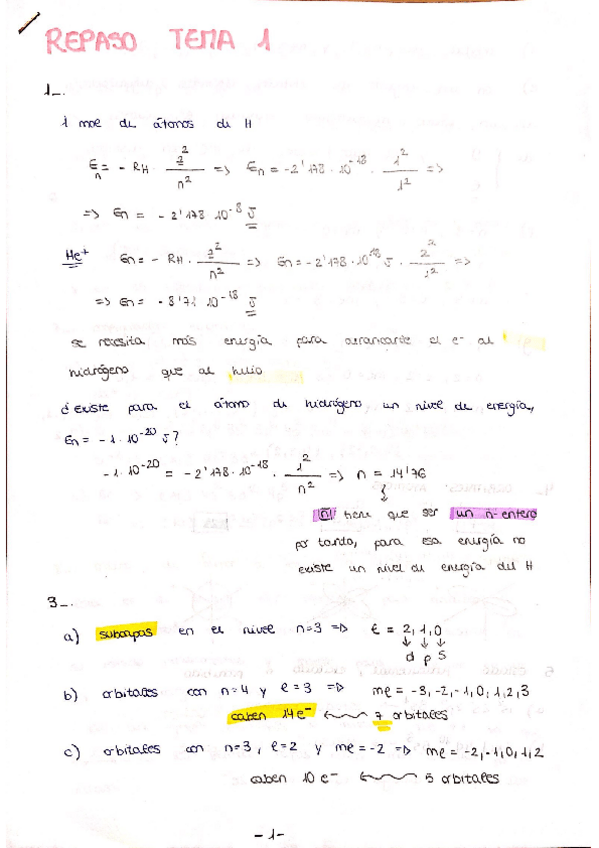 REPASO TEMA 1
1_.
1 mol de átomos de H
En = - RH · z²/n² => En = -2'178 · 10⁻¹⁸ · 1²/1² =>
=> En = - 2'178 · 10⁻⁸ J
He⁺ En = - RH · z²/n² => En = -2'178 · 10⁻¹⁸ J · 2²/1² =>
=> En = - 8'71 · 10⁻¹⁸ J
se necesita más energía para arrancarle el e⁻ al
hidrógeno que al helio
¿Existe para el átomo de hidrógeno un nivel de energía,
En = - 1 · 10⁻²⁰ J?
-1 · 10⁻²⁰ = - 2'178 · 10⁻¹⁸ · 1²/n² => n = 14'76
n tiene que ser un nº entero
por tanto, para esa energía no
existe un nivel de energía del H
3_.
a) subcapas en el nivel n=3 => ℓ = 2, 1, 0
d p s
b) orbitales con n=4 y ℓ=3 => mℓ = -3, -2, -1, 0, 1, 2, 3
caben 14e⁻ 7 orbitales
c) orbitales con n=3, ℓ=2 y mℓ=-2 => mℓ = -2, -1, 0, 1, 2
caben 10 e⁻ 5 orbitales
- 1 -